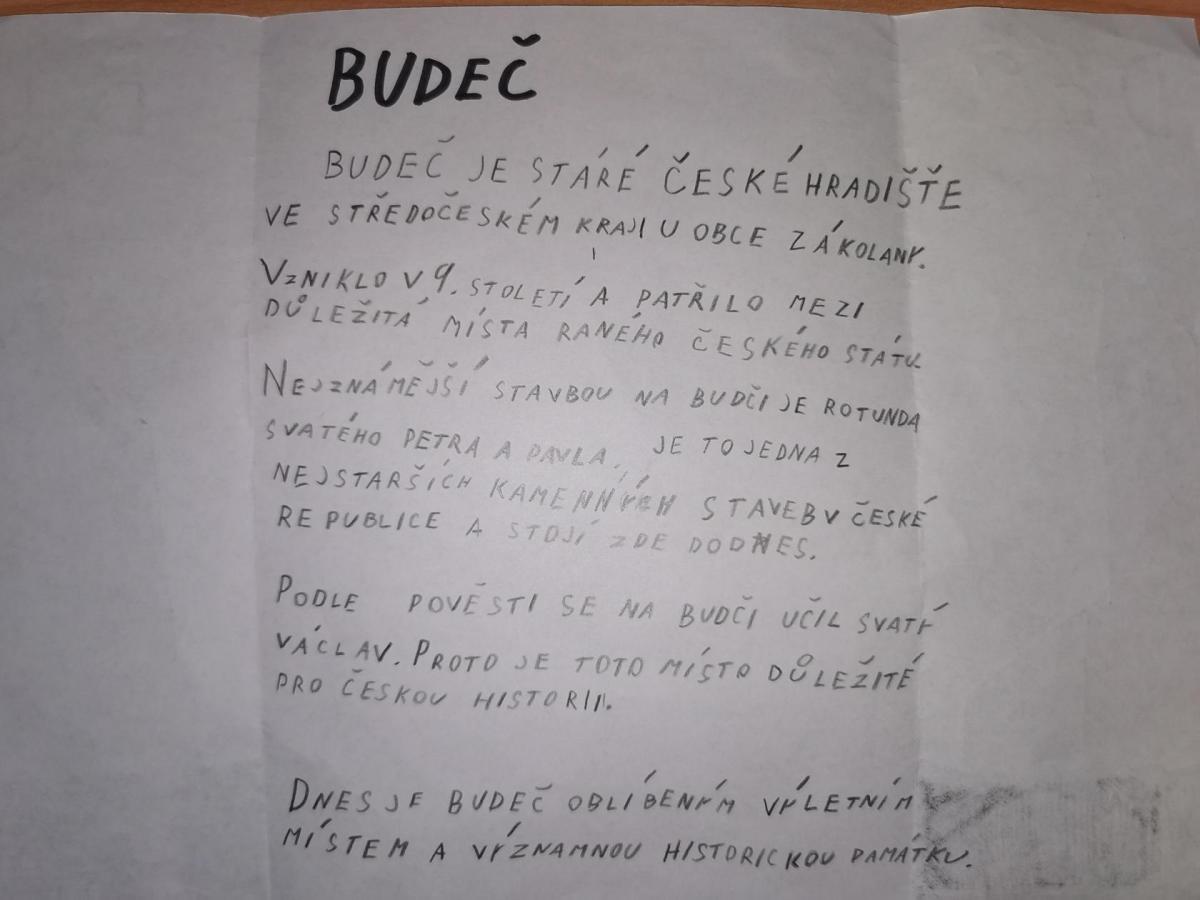 BUDEČ
BUDEČ JE STARÉ ČESKÉ HRADIŠŤE
VE STŘEDOČESKÉM KRAJI U OBCE ZÁKOLANY.
VZNIKLO V 9. STOLETÍ A PATŘILO MEZI
DŮLEŽITÁ MÍSTA RANÉHO ČESKÉHO STÁTU.
NEJZNÁMĚJŠÍ STAVBOU NA BUDČI JE ROTUNDA
SVATÉHO PETRA A PAVLA, JE TO JEDNA Z
NEJSTARŠÍCH KAMENNÝCH STAVEB V ČESKÉ
REPUBLICE A STOJÍ ZDE DODNES.
PODLE POVĚSTI SE NA BUDČI UČIL SVATÝ
VÁCLAV. PROTO JE TOTO MÍSTO DŮLEŽITÉ
PRO ČESKOU HISTORII.
DNES JE BUDEČ OBLÍBENÝM VÝLETNÍM
MÍSTEM A VÝZNAMNOU HISTORICKOU PAMÁTKU.